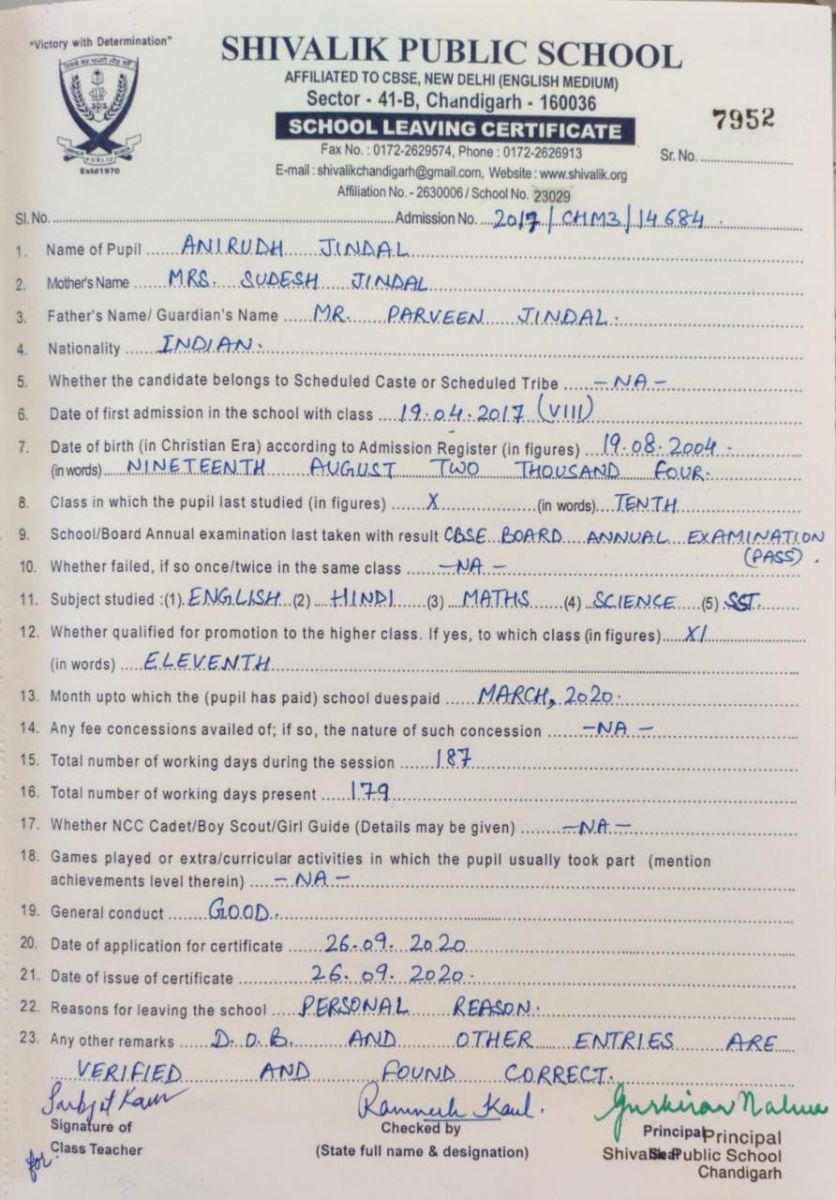 "Victory with Determination"
SHIVALIK PUBLIC SCHOOL
AFFILIATED TO CBSE, NEW DELHI (ENGLISH MEDIUM)
Sector - 41-B, Chandigarh - 160036
SCHOOL LEAVING CERTIFICATE
7952
Fax No. : 0172-2629574, Phone : 0172-2626913
Sr. No.
E-mail : shivalikchandigarh@gmail.com, Website : www.shivalik.org
Affiliation No. - 2630006 / School No. 23029
PUBLIC
Estd 1970
Sl. No. Admission No. 2017/CHM3/14684.
1. Name of Pupil ANIRUDH JINDAL
2. Mother's Name MRS. SUDESH JINDAL
3. Father's Name/ Guardian's Name MR. PARVEEN JINDAL.
4. Nationality INDIAN.
5. Whether the candidate belongs to Scheduled Caste or Scheduled Tribe -NA-
6. Date of first admission in the school with class 19.04.2017 (VIII)
7. Date of birth (in Christian Era) according to Admission Register (in figures) 19.08.2004.
(in words) NINETEENTH AUGUST TWO THOUSAND FOUR.
8. Class in which the pupil last studied (in figures) X (in words) TENTH
9. School/Board Annual examination last taken with result CBSE BOARD ANNUAL EXAMINATION
(PASS).
10. Whether failed, if so once/twice in the same class -NA-
11. Subject studied :(1) ENGLISH (2) HINDI (3) MATHS (4) SCIENCE (5) SST.
12. Whether qualified for promotion to the higher class. If yes, to which class (in figures) XI
(in words) ELEVENTH
13. Month upto which the (pupil has paid) school duespaid MARCH, 2020.
14. Any fee concessions availed of; if so, the nature of such concession -NA-
15. Total number of working days during the session 187
16. Total number of working days present 179
17. Whether NCC Cadet/Boy Scout/Girl Guide (Details may be given) -NA-
18. Games played or extra/curricular activities in which the pupil usually took part (mention
achievements level therein) -NA-
19. General conduct GOOD.
20. Date of application for certificate 26.09.2020
21. Date of issue of certificate 26.09.2020.
22. Reasons for leaving the school PERSONAL REASON.
23. Any other remarks D.O.B. AND OTHER ENTRIES ARE
VERIFIED AND FOUND CORRECT.
Sarbjit Kaur Ramneek Kaul. Gurkiran Nalwa
Signature of Checked by Principal Principal
for Class Teacher (State full name & designation) Shivalik Public School
Seal
Chandigarh